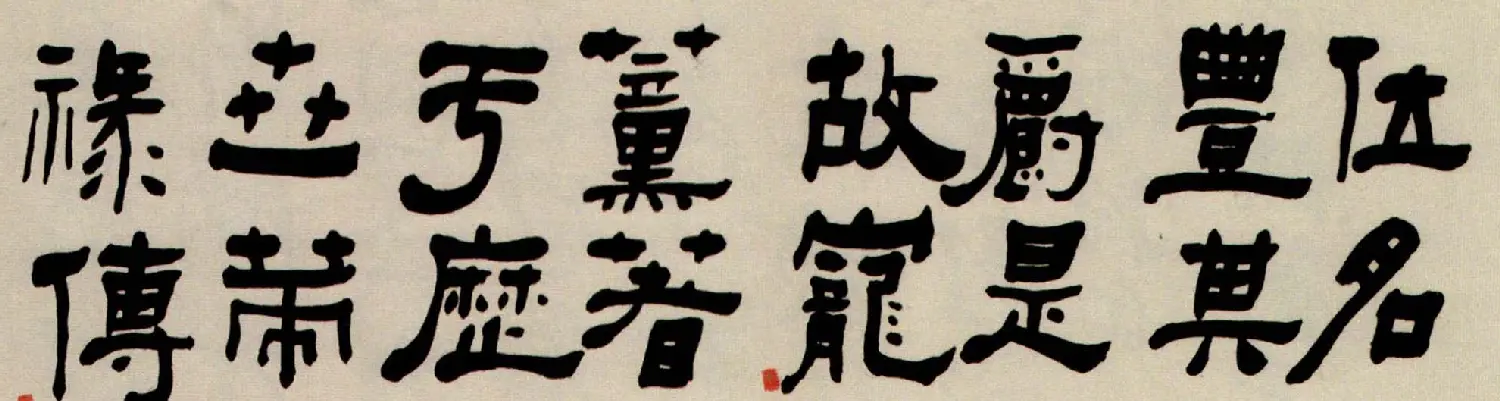 位名
豐其
爵是
故寵
薰著
于歷
世策
祿傳